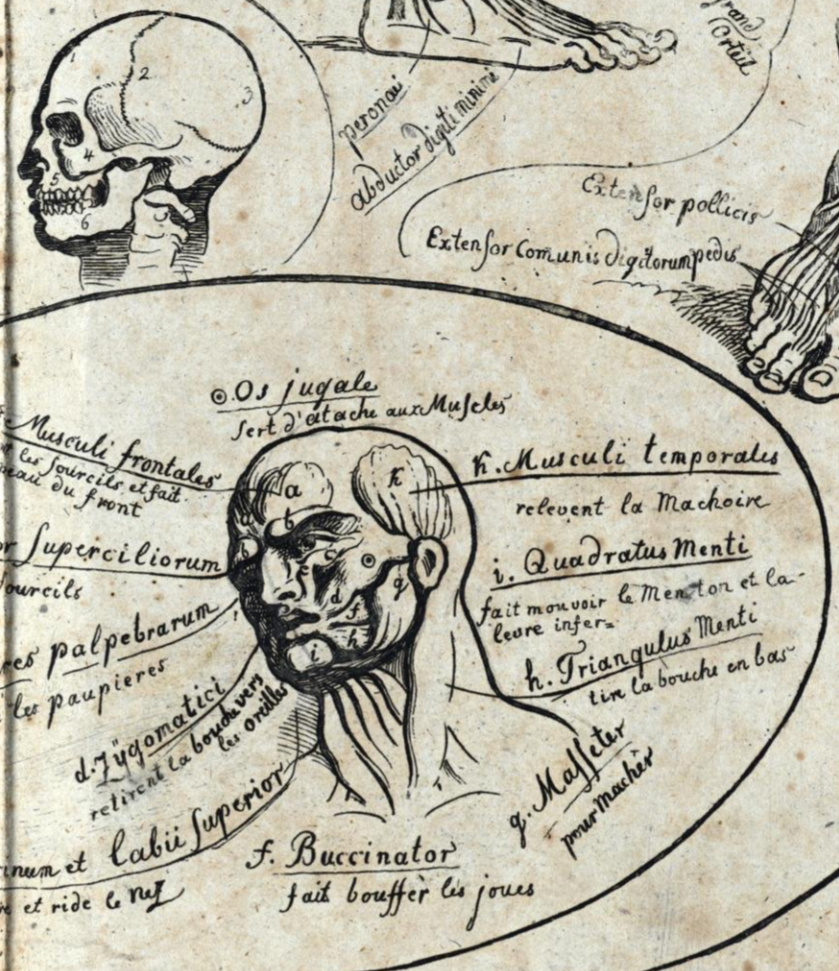 1
2
3
4
5
6
peronai
abductor digiti minimi
grand
Extenſor pollicis
Extenſor Comunis digitorum pedis
⊙. Os jugale
ſert d'atache aux Muſcles
Musculi frontales
les ſourcils et fait
peau du front
Superciliorum
ſourcils
palpebrarum
les paupieres
d. Zÿgomatici
retirent la bouche vers
les oreilles
et labii Superior
et ride le nez
f. Buccinator
fait bouffèr les joues
g. Maſſeter
pour Machèr
h. Triangulus Menti
tire la bouche en bas
i. Quadratus Menti
fait mouvoir le Menton et la-
levre infer=
k. Musculi temporales
relevent la Machoire
a
b
b
c
e
d
f
g
h
i
k